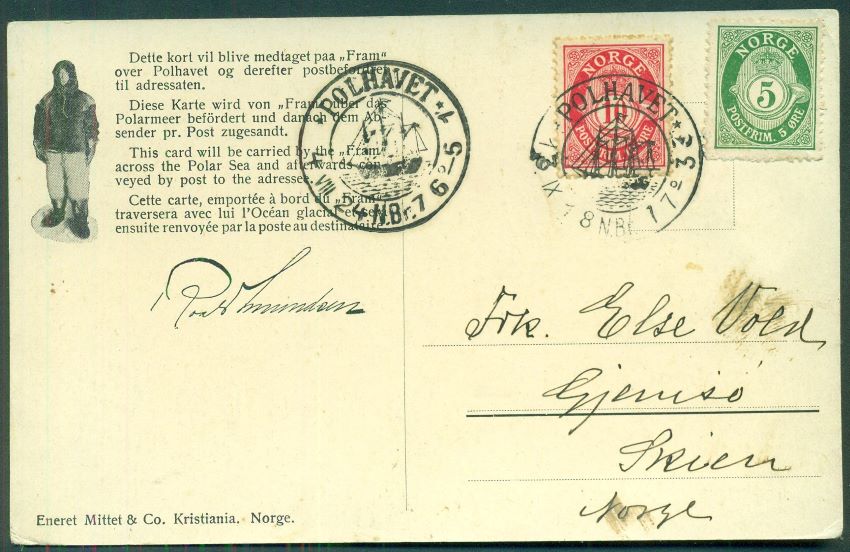 Dette kort vil blive medtaget paa „Fram“
over Polhavet og derefter postbefordret
til adressaten.
Diese Karte wird von „Fram“ über das
Polarmeer befördert und danach dem Ab-
sender pr. Post zugesandt.
This card will be carried by the „Fram“
across the Polar Sea and afterwards con-
veyed by post to the adressee.
Cette carte, emportée à bord du „Fram“
traversera avec lui l'Océan glacial et sera
ensuite renvoyée par la poste au destinataire
Roald Amundsen
Eneret Mittet & Co. Kristiania, Norge.
POLHAVET
VIII 24 N.Br. 76
NORGE
10
POLHAVET
XI 18 N.Br.
NORGE
5
POSTFRIM. 5 ØRE
Frk. Else Vold
Gjemsø
Skien
Norge